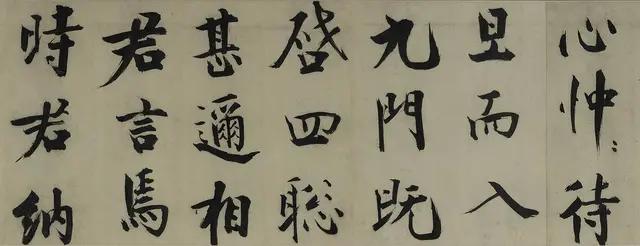 心忡〻待
旦而入
九門既
啓四聰
甚邇相
君言焉
時君納